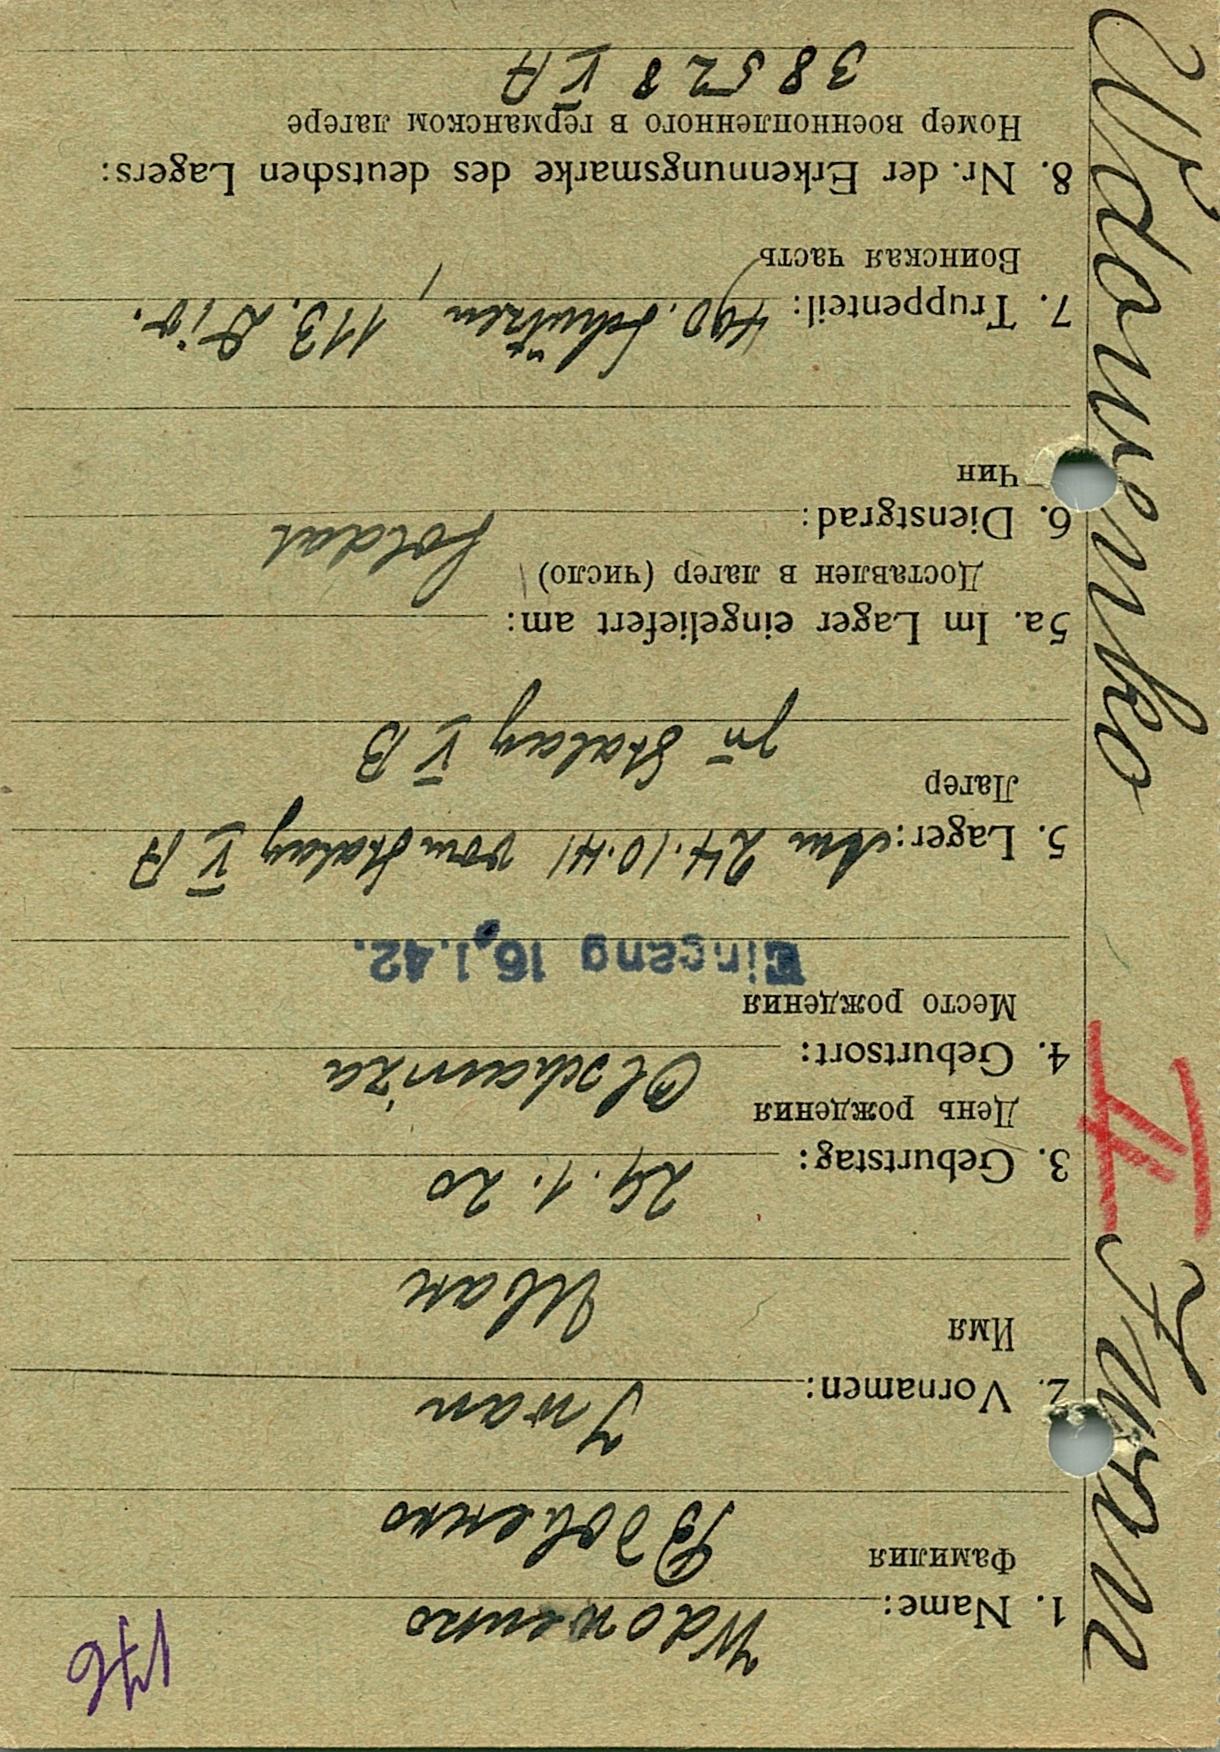 176
1. Name: Wdowenko
Фамилия Вдовенко
2. Vornamen: Iwan
Имя Иван
3. Geburtstag: 29. 1. 20
День рождения
4. Geburtsort: Olschaniza
Место рождения
Eingang 16.1.42.
5. Lager: Am 24.10.41 vom Stalag V A
Лагер
zu Stalag V B
5a. Im Lager eingeliefert am:
Доставлен в лагер (число)
6. Dienstgrad: Soldat
Чин
7. Truppenteil: 490. Schützen, 113. Div.
Воинская часть
8. Nr. der Erkennungsmarke des deutschen Lagers:
Номер военнопленного в германском лагере
38528 V A
Wdowenko Iwan